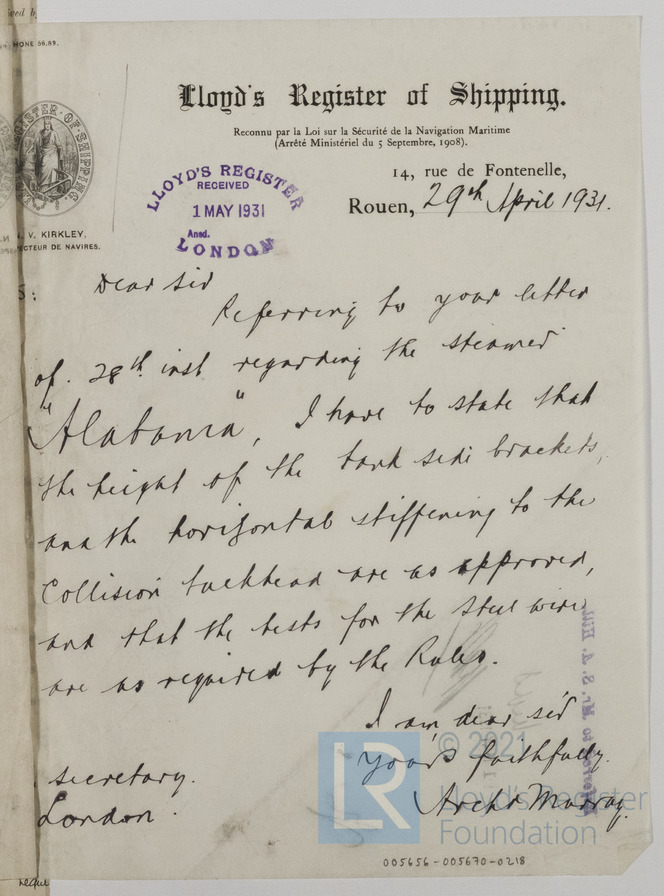 HONE 56.89.
Lloyd's Register of Shipping.
Reconnu par la Loi sur la Sécurité de la Navigation Maritime
(Arrêté Ministériel du 5 Septembre, 1908).
14, rue de Fontenelle,
Rouen, 29th April 1931.
LLOYD'S REGISTER
RECEIVED
1 MAY 1931
Ansd.
LONDON
V. KIRKLEY,
ECTEUR DE NAVIRES.
S:
Dear Sir
Referring to your letter
of. 28th inst regarding the steamer
"Alabama", I have to state that
the height of the tank side brackets,
and the horizontal stiffening to the
Collision bulkhead are as approved,
and that the tests for the steel wire
are as required by the Rules.
I am, dear sir
yours faithfully.
Archd Murray.
Secretary.
London.
© 2021
LR
Lloyd's Register
Foundation
005656-005670-0218